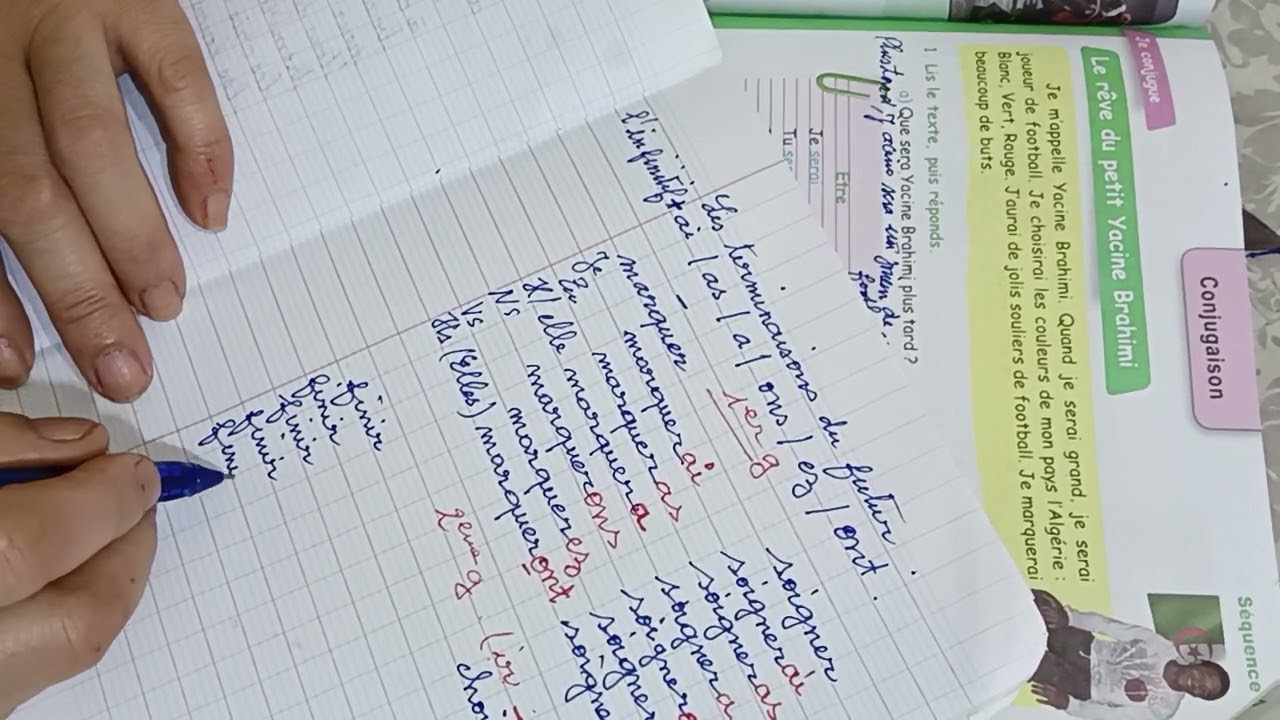 Conjugaison
Séquence
Je conjugue
Le rêve du petit Yacine Brahimi
Je m'appelle Yacine Brahimi. Quand je serai grand, je serai
joueur de football. Je choisirai les couleurs de mon pays l'Algérie :
Blanc, Vert, Rouge. J'aurai de jolis souliers de football. Je marquerai
beaucoup de buts.
1 Lis le texte, puis réponds.
a) Que sera Yacine Brahimi plus tard ?
Être
Je serai
Tu se
Les terminaisons du futur.
l'infinitif + ai / as / a / ons / ez / ont.
1er g
marquer
marquerai
Je marqueras
Tu marquera
Il/elle marquerons
Ns marquerez
Vs marqueront
Ils (Elles)
soigner
soignerai
soigneras
soignera
soigner
soigne
soigne
2eme g (ir
choi
finir
finir
finir
finir
fini